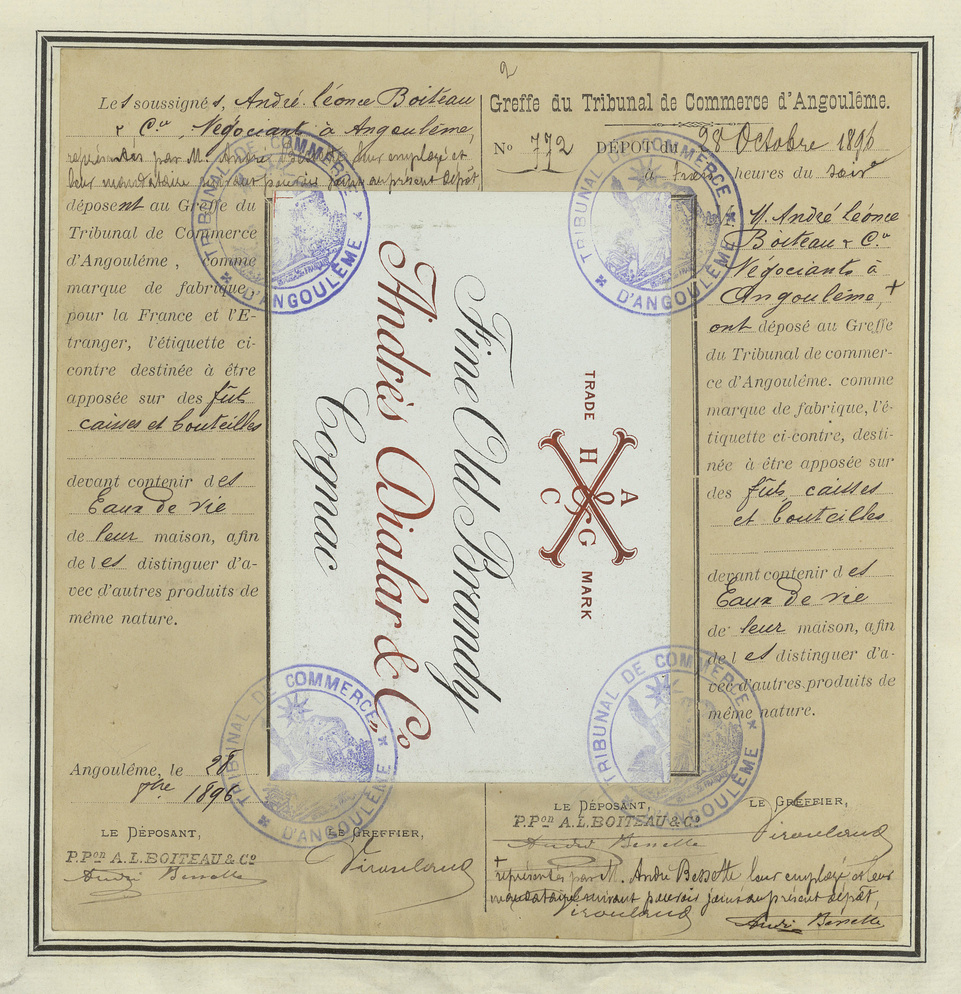 2
Les soussignés, André-léonce Boiteau
& Cie, Négociants à Angoulême,
représentés par M. André Bessette leur employé et
leur mandataire suivant pouvoir joint au présent dépôt
déposent au Greffe du
Tribunal de Commerce
d'Angoulême, comme
marque de fabrique
pour la France et l'E-
tranger, l'étiquette ci-
contre destinée à être
apposée sur des fûts
caisses et bouteilles
devant contenir des
Eaux de vie
de leur maison, afin
de les distinguer d'a-
vec d'autres produits de
même nature.
Angoulême, le 28
1896
LE DÉPOSANT, LE GREFFIER,
P.Pon A.L.BOITEAU & Co
André Bessette
Virouland
Fine Old Brandy
Andrès Dialar & Co,
Cognac
TRADE
H
C & A
G
MARK
Greffe du Tribunal de Commerce d'Angoulême.
No 772 DÉPOT du 28 Octobre 1896
à trois heures du soir
M. André léonce
Boiteau & Cie
Négociants à
Angoulême, +
ont déposé au Greffe
du Tribunal de commer-
ce d'Angoulême. comme
marque de fabrique, l'é-
tiquette ci-contre, desti-
née à être apposée sur
des fûts, caisses
et bouteilles
devant contenir des
Eaux de vie
de leur maison, afin
de les distinguer d'a-
vec d'autres produits de
même nature.
LE DÉPOSANT, LE GREFFIER,
P.Pon A.L.BOITEAU & Co
André Bessette
Virouland
+ représentés par M. André Bessette leur employé et leur
mandataire suivant pouvoir joint au présent dépôt,
Virouland
André Bessette
TRIBUNAL DE COMMERCE
D'ANGOULÊME
TRIBUNAL DE COMMERCE
D'ANGOULÊME
TRIBUNAL DE COMMERCE
D'ANGOULÊME
TRIBUNAL DE COMMERCE
D'ANGOULÊME